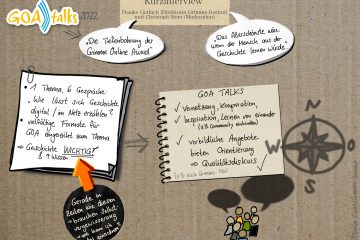 GOA talks 2022
Kurzinterview
Frauke Gerlach (Direktorin Grimme-Institut)
und Christoph Stern (Moderation)
"Die Tieferbohrung der
Grimme Online Award"
"Das Allerschönste wäre,
wenn der Mensch aus der
Geschichte lernen würde"
• 1 Thema, 6 Gespräche:
"Wie lässt sich Geschichte
digital / im Netz erzählen?
• vielfältige Formate für
GOA eingereicht zum Thema
→ Geschichte WICHTIG!
& Wissen
GOA TALKS
✓ Vernetzung, Kooperation,
✓ Inspiration, Lernen von einander
(z.B. Community einbinden)
✓ vorbildliche Angebote
bieten Orientierung
→ Qualitätsdiskurs ✓
Gerade in
Zeiten wie diesen
brauchen Selbst-
vergewisserung